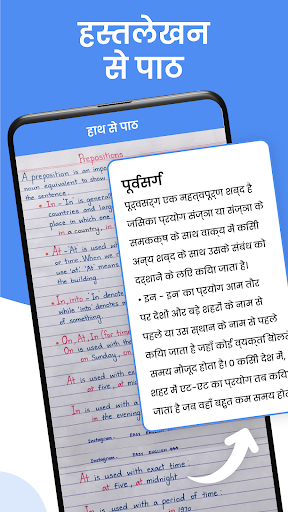 हस्तलेखन
से पाठ
हाथ से पाठ
Prepositions
A preposition is an
noun equivalent to show
the sentence.
• In - 'In' is general
countries and large
place in which one
in a country, in
• At - At is used
or time. When we
use 'at'. 'At' means
the building.
• In, into - In denote
while 'into' denotes
of something.
• On, At, In (for time
On is used with the
on Sunday, on
At is used with exact
at five, at mid
In is used with a
in the evening
Instagram - EASY ENGLISH
Instagram - EASY ENGLISH
At is used with exact time.
at five, at midnight
In is used with a period of time.
in 1970
पूर्वसर्ग
पूर्वसर्ग एक महत्वपूर्ण शब्द है
जिसका प्रयोग संज्ञा या संज्ञा के
समकक्ष के साथ वाक्य में किसी
अन्य शब्द के साथ उसके संबंध को
दर्शाने के लिए किया जाता है।
• इन - इन का प्रयोग आम तौर
पर देशों और बड़े शहरों के नाम से
पहले या उस स्थान के नाम से पहले
किया जाता है जहाँ कोई व्यक्ति बोलते
समय मौजूद होता है। 0 किसी देश में,
शहर में एट-एट का प्रयोग तब किया
जाता है जब वहाँ बहुत कम समय हो